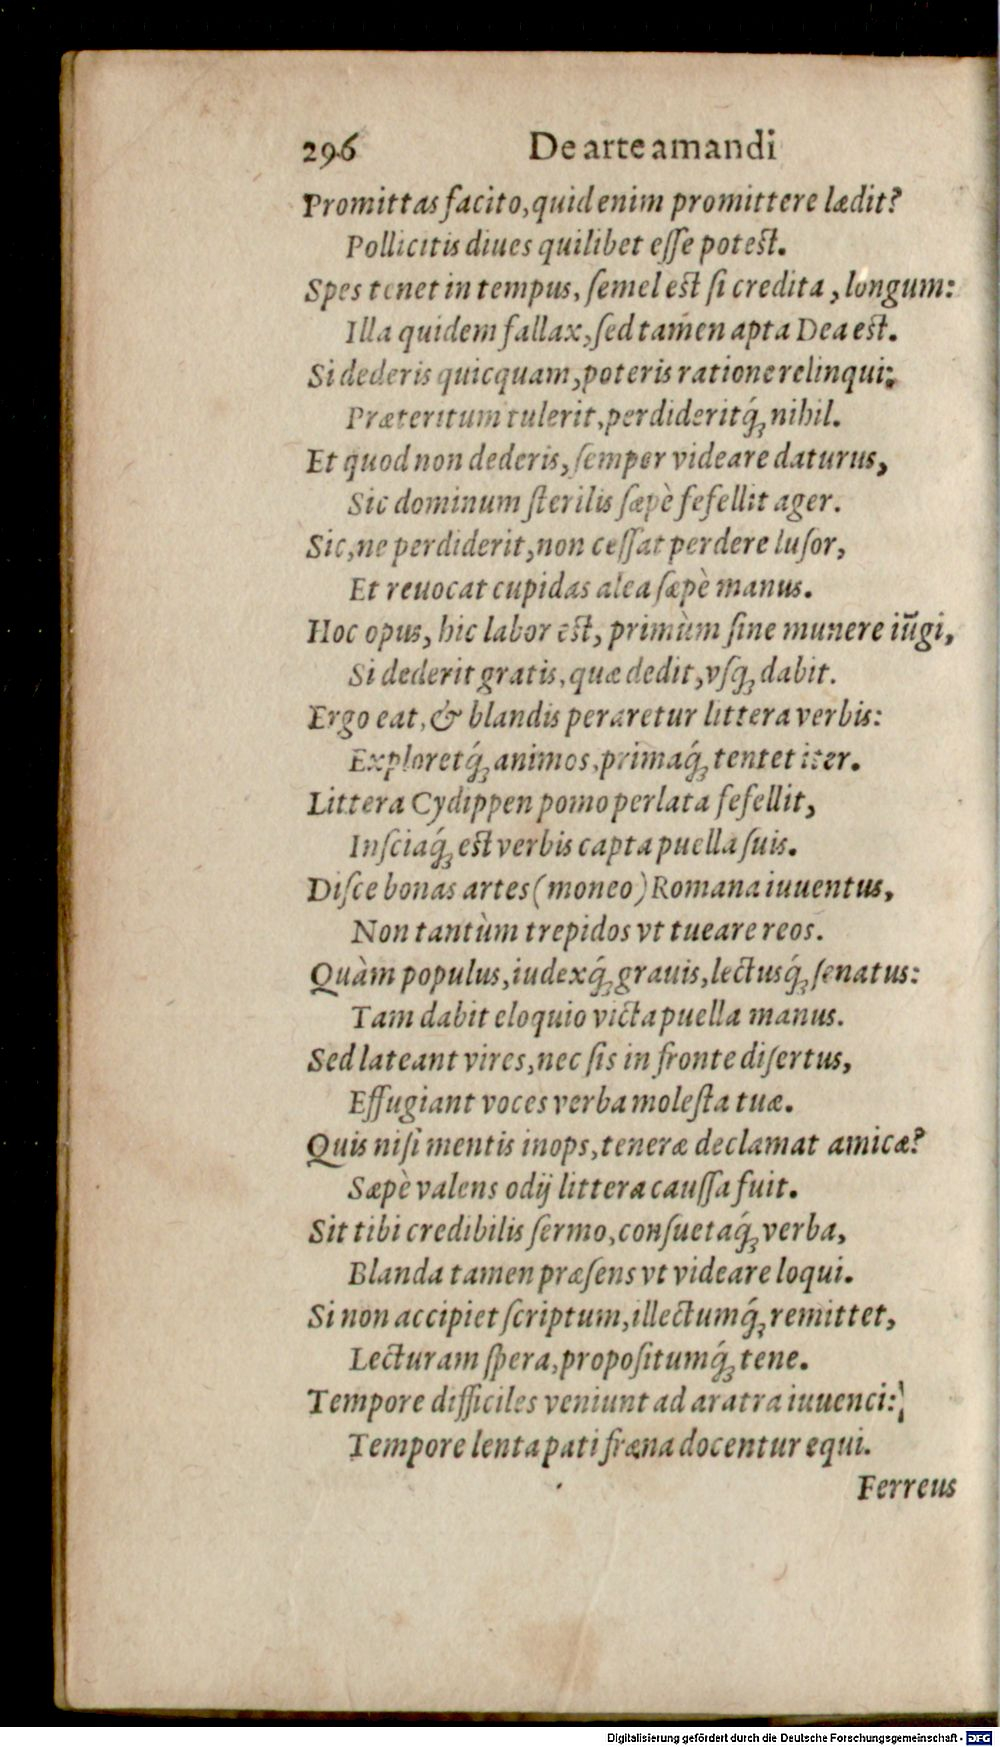 296 De arte amandi
Promittas facito, quid enim promittere lædit?
Pollicitis diues quilibet eſſe poteſt.
Spes tenet in tempus, ſemel eſt ſi credita, longum:
Illa quidem fallax, ſed tamen apta Dea eſt.
Si dederis quicquam, poteris ratione relinqui:
Præteritum tulerit, perdideritq́; nihil.
Et quod non dederis, ſemper videare daturus,
Sic dominum ſterilis ſæpè fefellit ager.
Sic, ne perdiderit, non ceſſat perdere luſor,
Et reuocat cupidas alea ſæpè manus.
Hoc opus, hic labor eſt, primùm ſine munere iūgi,
Si dederit gratis, quæ dedit, vſq; dabit.
Ergo eat, & blandis peraretur littera verbis:
Exploretq́; animos, primaq́; tentet iter.
Littera Cydippen pomo perlata fefellit,
Inſciaq́; eſt verbis capta puella ſuis.
Diſce bonas artes (moneo) Romana iuuentus,
Non tantùm trepidos vt tueare reos.
Quàm populus, iudexq́; grauis, lectusq́; ſenatus:
Tam dabit eloquio victa puella manus.
Sed lateant vires, nec ſis in fronte diſertus,
Effugiant voces verba moleſta tuæ.
Quis niſi mentis inops, teneræ declamat amicæ?
Sæpè valens odij littera cauſſa fuit.
Sit tibi credibilis ſermo, conſuetaq́; verba,
Blanda tamen præſens vt videare loqui.
Si non accipiet ſcriptum, illectumq́; remittet,
Lecturam ſpera, propoſitumq́; tene.
Tempore difficiles veniunt ad aratra iuuenci:
Tempore lenta pati fræna docentur equi.
Ferreus
Digitalisierung gefördert durch die Deutsche Forschungsgemeinschaft - DFG